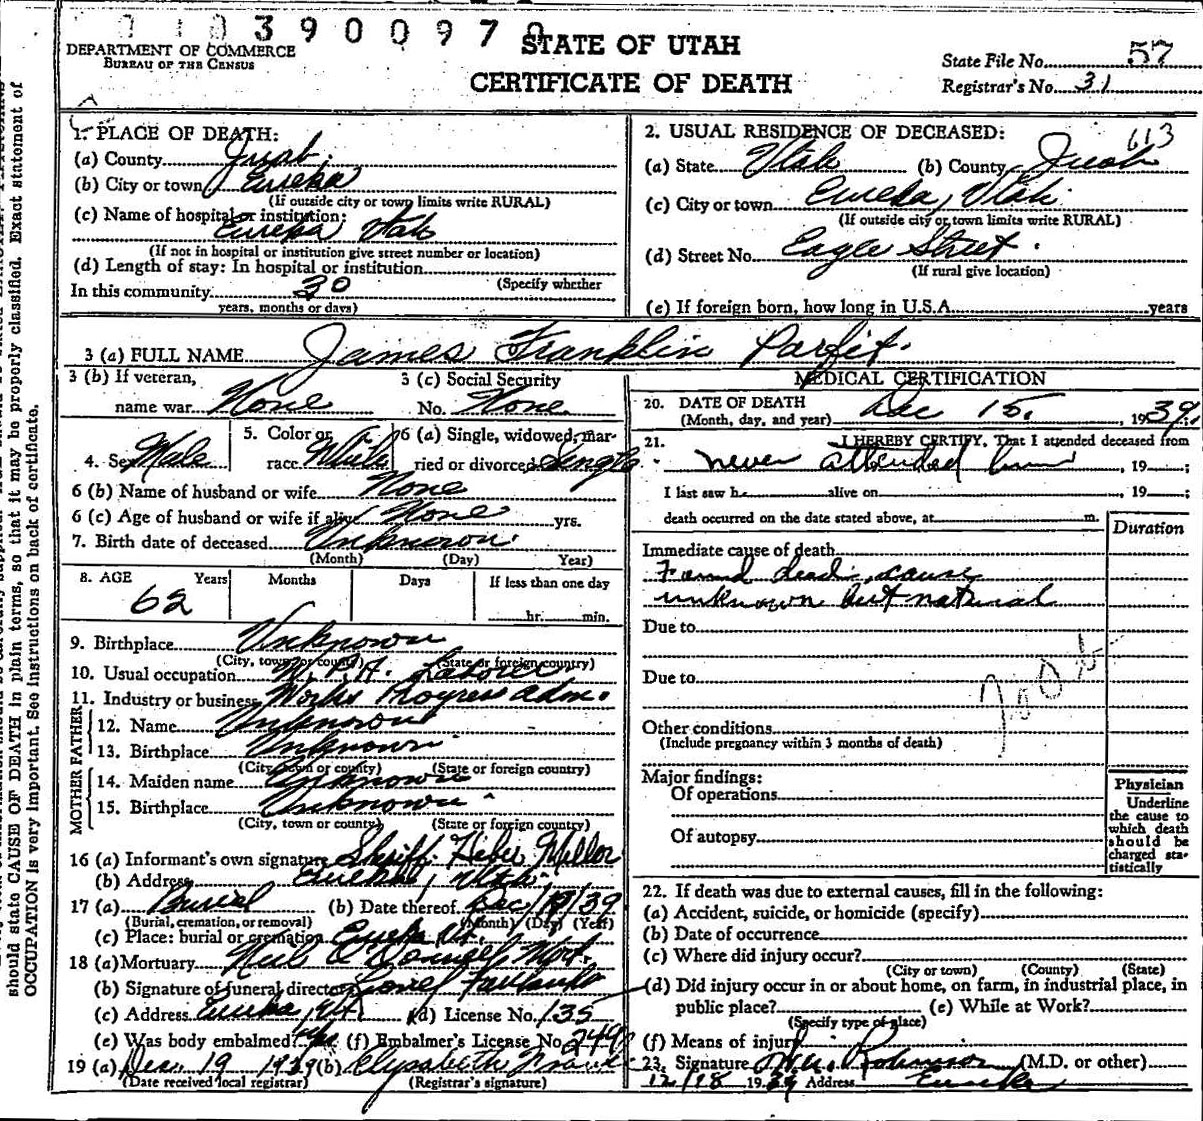 3900970
DEPARTMENT OF COMMERCE
BUREAU OF THE CENSUS
STATE OF UTAH
CERTIFICATE OF DEATH
State File No. 57
Registrar's No. 31
613
1. PLACE OF DEATH:
(a) County Juab
(b) City or town Eureka
(If outside city or town limits write RURAL)
(c) Name of hospital or institution:
Eureka Utah
(If not in hospital or institution give street number or location)
(d) Length of stay: In hospital or institution
(Specify whether
In this community 30
years, months or days)
2. USUAL RESIDENCE OF DECEASED:
(a) State Utah (b) County Juab
(c) City or town Eureka, Utah
(If outside city or town limits write RURAL)
(d) Street No. Eagle Street
(If rural give location)
(e) If foreign born, how long in U.S.A. years
3 (a) FULL NAME James Franklin Parfit
3 (b) If veteran,
name war None
3 (c) Social Security
No. None
4. Sex Male
5. Color or
race White
6 (a) Single, widowed, married or divorced Single
6 (b) Name of husband or wife None
6 (c) Age of husband or wife if alive None yrs.
7. Birth date of deceased Unknown
(Month) (Day) Year)
8. AGE Years Months Days If less than one day
62 hr. min.
9. Birthplace Unknown
(City, town or county) (State or foreign country)
10. Usual occupation W.P.A. Laborer
11. Industry or business Works Progress Adm.
FATHER
12. Name Unknown
13. Birthplace Unknown
(City, town or county) (State or foreign country)
MOTHER
14. Maiden name Unknown
15. Birthplace Unknown
(City, town or county) (State or foreign country)
16 (a) Informant's own signature Sheriff Heber Miller
(b) Address Eureka, Utah
17 (a) Burial (b) Date thereof Dec/19/39
(Burial, cremation, or removal) (Month) (Day) (Year)
(c) Place: burial or cremation Eureka Ut.
18 (a) Mortuary Neil O'Donnell Mort.
(b) Signature of funeral director
(c) Address Eureka, Ut (d) License No. 135
(e) Was body embalmed? (f) Embalmer's License No. 249
19 (a) Dec. 19 1939 (b) Elysabeth
(Date received local registrar) (Registrar's signature)
MEDICAL CERTIFICATION
20. DATE OF DEATH
(Month, day, and year) Dec 15, 1939
21. I HEREBY CERTIFY, That I attended deceased from
never attended him , 19 ;
I last saw h alive on , 19 ;
death occurred on the date stated above, at m.
Duration
Immediate cause of death
Found dead, cause
unknown but natural
Due to
Due to
200b
Other conditions
(Include pregnancy within 3 months of death)
Major findings:
Of operations
Of autopsy
Physician
Underline
the cause to
which death
should be
charged statistically
22. If death was due to external causes, fill in the following:
(a) Accident, suicide, or homicide (specify)
(b) Date of occurrence
(c) Where did injury occur?
(City or town) (County) (State)
(d) Did injury occur in or about home, on farm, in industrial place, in
public place? (e) While at Work?
(Specify type of place)
(f) Means of injury
23. Signature Robinson (M.D. or other)
12/18 1939 Address Eureka
should state CAUSE OF DEATH in plain terms, so that it may be properly classified. Exact statement of
OCCUPATION is very important. See instructions on back of certificate.